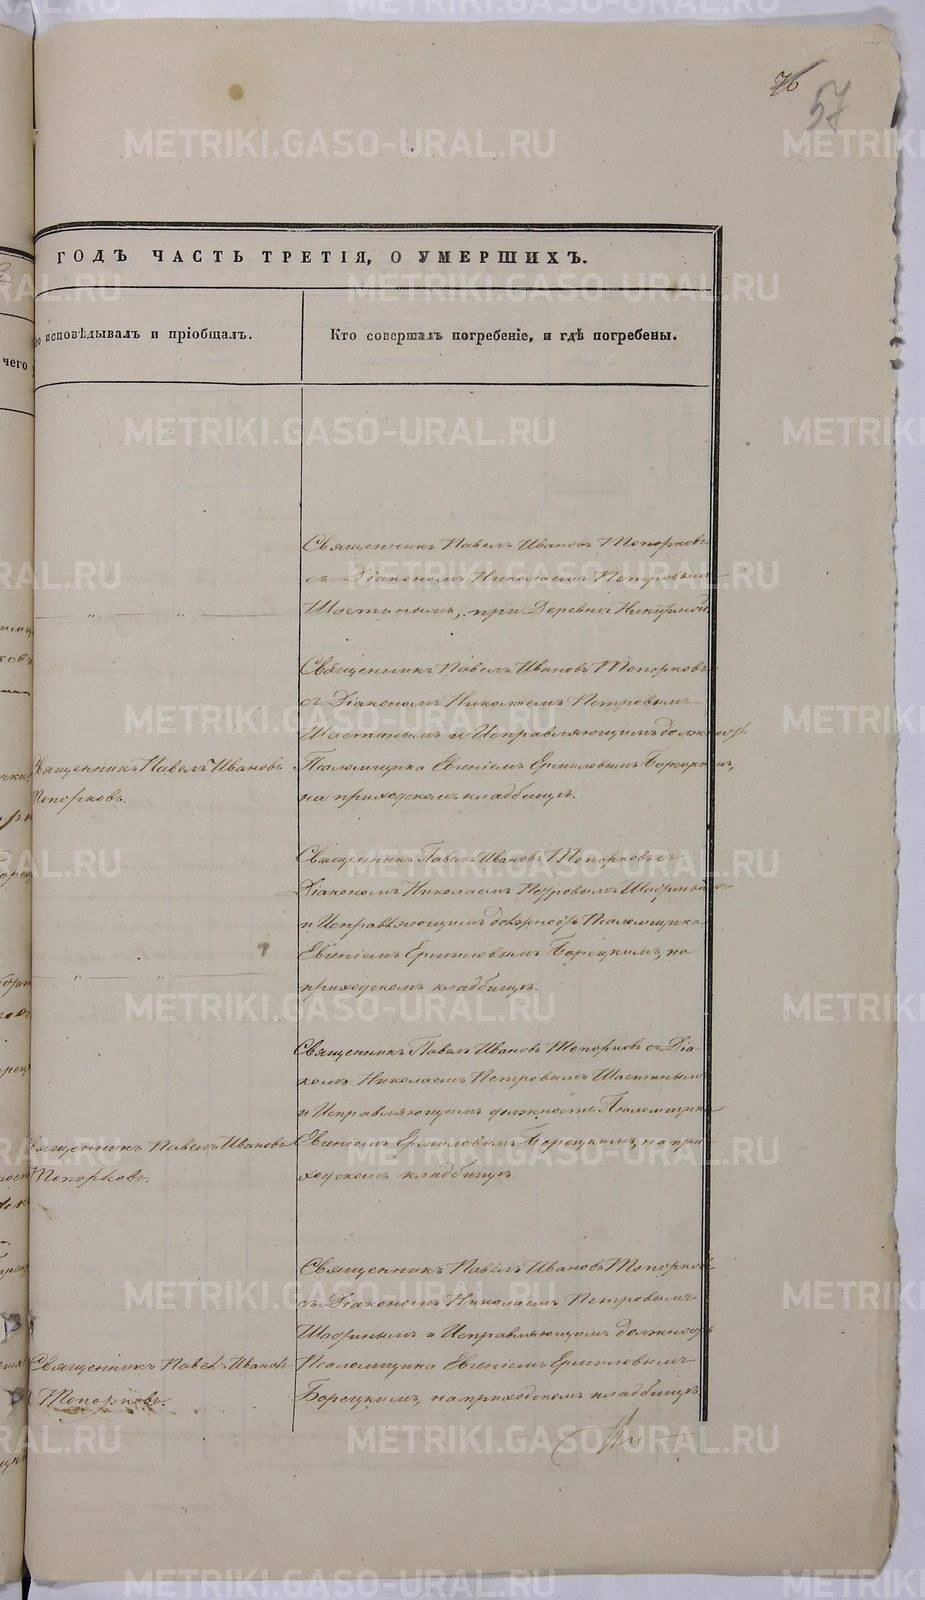 76
57
ГОДЪ ЧАСТЬ ТРЕТІЯ, О УМЕРШИХЪ.
исповѣдывалъ и пріобщалъ.
Кто совершалъ погребеніе, и гдѣ погребены.
чего
Священникъ Павелъ Ивановъ Топорковъ
съ Діакономъ Николаемъ Петровымъ
Шастинымъ, при Деревни
Священникъ Павелъ Ивановъ Топорковъ
съ Діакономъ Николаемъ Петровымъ
Шастинымъ и Исправляющимъ должность
Псаломщика Евгеніемъ Ермиловымъ Борецкимъ,
на приходскомъ кладбищѣ.
Священникъ Павелъ Ивановъ
Топорковъ.
Священникъ Павелъ Ивановъ Топорковъ съ
Діакономъ Николаемъ Петровымъ Шастинымъ
и Исправляющимъ должность Псаломщика
Евгеніемъ Ермиловымъ Борецкимъ, на
приходскомъ кладбищѣ.
Священникъ Павелъ Ивановъ Топорковъ съ Діа-
комъ Николаемъ Петровымъ Шастинымъ
и Исправляющимъ должность Псаломщика
Евгеніемъ Ермиловымъ Борецкимъ, на при-
ходскомъ кладбищѣ.
Священникъ Павелъ Ивановъ
Топорковъ.
Священникъ Павелъ Ивановъ Топорковъ
съ Діакономъ Николаемъ Петровымъ
Шастинымъ и Исправляющимъ должность
Псаломщика Евгеніемъ Ермиловымъ
Борецкимъ, на приходскомъ кладбищѣ
Священникъ Павелъ Ивановъ
Топорковъ.
METRIKI.GASO-URAL.RU